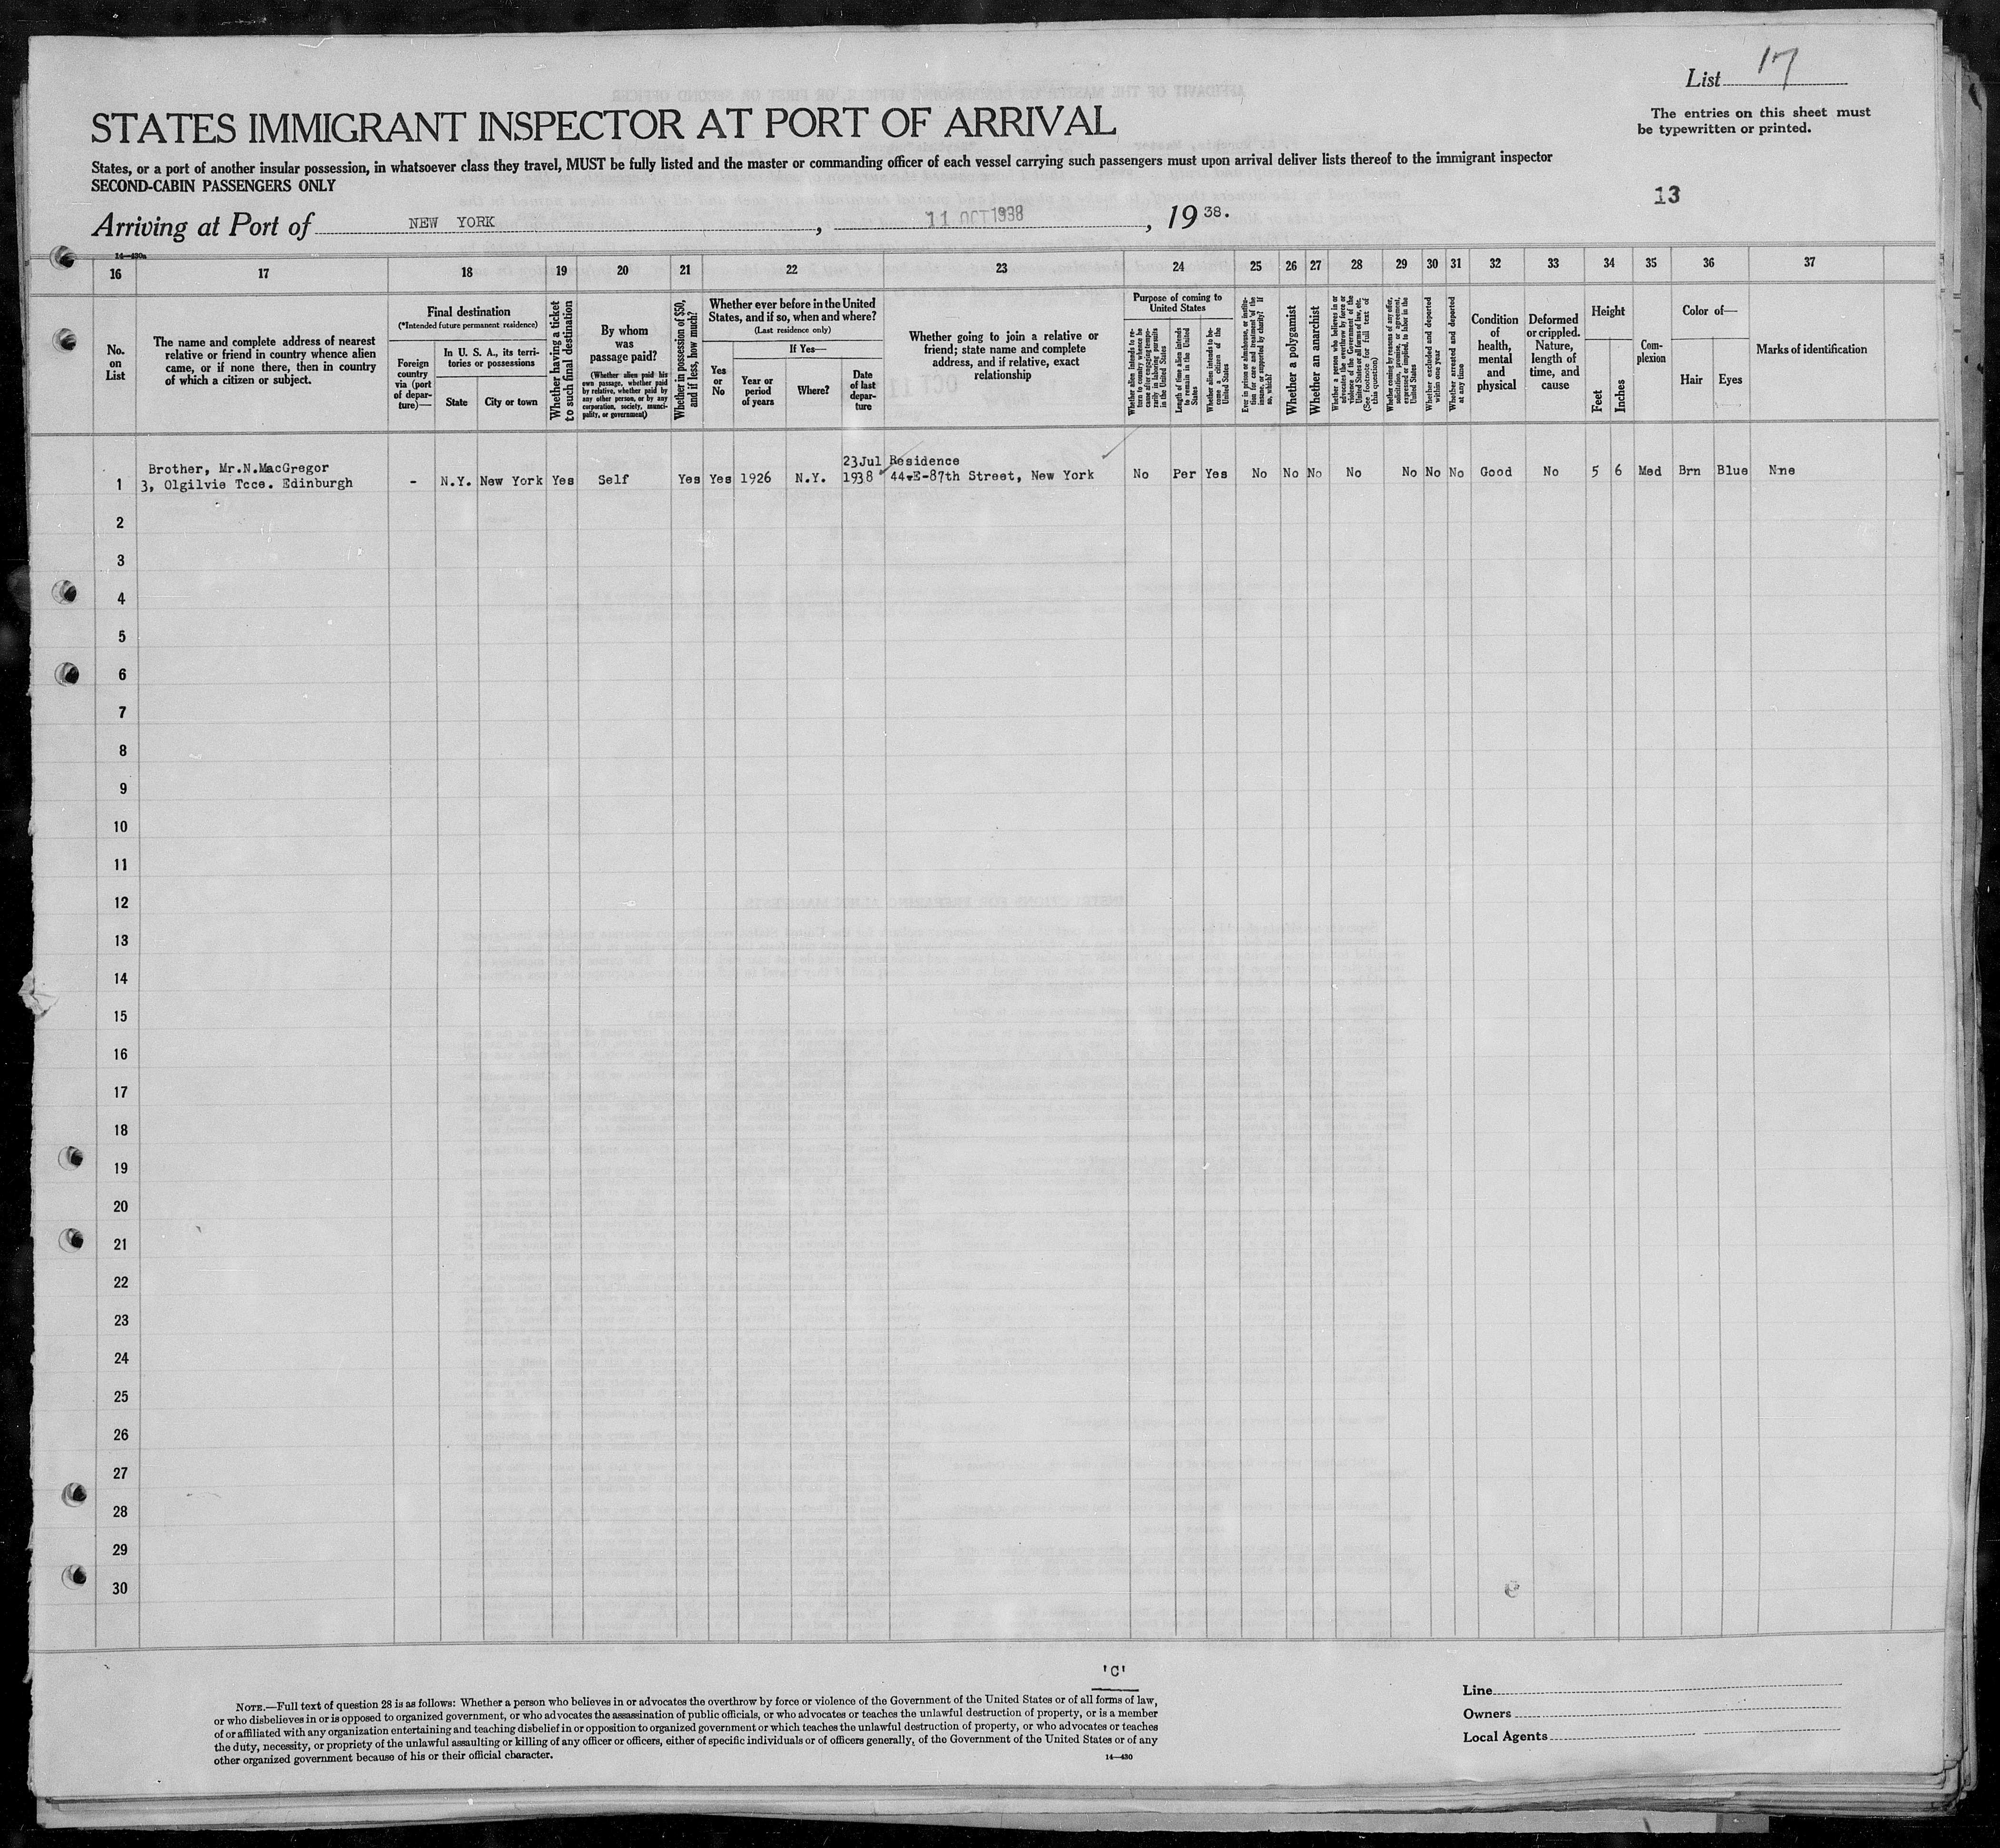 List 17
The entries on this sheet must
be typewritten or printed.
STATES IMMIGRANT INSPECTOR AT PORT OF ARRIVAL
States, or a port of another insular possession, in whatsoever class they travel, MUST be fully listed and the master or commanding officer of each vessel carrying such passengers must upon arrival deliver lists thereof to the immigrant inspector
SECOND-CABIN PASSENGERS ONLY
13
Arriving at Port of NEW YORK, 11 OCT 1938, 19 38.
14—430a
16 17 18 19 20 21 22 23 24 25 26 27 28 29 30 31 32 33 34 35 36 37
No.
on
List
The name and complete address of nearest
relative or friend in country whence alien
came, or if none there, then in country
of which a citizen or subject.
Final destination
(*Intended future permanent residence)
Foreign
country
via (port
of depar-
ture)—
In U. S. A., its terri-
tories or possessions
State
City or town
Whether having a ticket
to such final destination
By whom
was
passage paid?
(Whether alien paid his
own passage, whether paid
by relative, whether paid by
any other person, or by any
corporation, society, munici-
pality, or government)
Whether in possession of $50,
and if less, how much?
Whether ever before in the United
States, and if so, when and where?
(Last residence only)
Yes
or
No
If Yes—
Year or
period
of years
Where?
Date
of last
depar-
ture
Whether going to join a relative or
friend; state name and complete
address, and if relative, exact
relationship
Purpose of coming to
United States
Whether alien intends to re-
turn to country whence he
came after engaging tempo-
rarily in laboring pursuits
in the United States
Length of time alien intends
to remain in the United
States
Whether alien intends to be-
come a citizen of the
United States
Ever in prison or almshouse, or institu-
tion for care and treatment of the
insane, or supported by charity? If
so, which?
Whether a polygamist
Whether an anarchist
Whether a person who believes in or
advocates the overthrow by force or
violence of the Government of the
United States or all forms of law, etc.
(See footnote for full text of
this question)
Whether coming by reason of any offer,
solicitation, promise, or agreement,
expressed or implied, to labor in the
United States
Whether excluded and deported
within one year
Whether arrested and deported
at any time
Condition
of
health,
mental
and
physical
Deformed
or crippled.
Nature,
length of
time, and
cause
Height
Feet
Inches
Com-
plexion
Color of—
Hair
Eyes
Marks of identification
Brother, Mr.N.MacGregor 23Jul Residence
1 3, Olgilvie Tcce. Edinburgh - N.Y. New York Yes Self Yes Yes 1926 N.Y. 1938 44 E-87th Street, New York No Per Yes No No No No No No No Good No 5 6 Med Brn Blue Nne
2
3
4
5
6
7
8
9
10
11
12
13
14
15
16
17
18
19
20
21
22
23
24
25
26
27
28
29
30
'C'
NOTE.—Full text of question 28 is as follows: Whether a person who believes in or advocates the overthrow by force or violence of the Government of the United States or of all forms of law,
or who disbelieves in or is opposed to organized government, or who advocates the assassination of public officials, or who advocates or teaches the unlawful destruction of property, or is a member
of or affiliated with any organization entertaining and teaching disbelief in or opposition to organized government or which teaches the unlawful destruction of property, or who advocates or teaches
the duty, necessity, or propriety of the unlawful assaulting or killing of any officer or officers, either of specific individuals or of officers generally, of the Government of the United States or of any
other organized government because of his or their official character.
14—430
Line
Owners
Local Agents